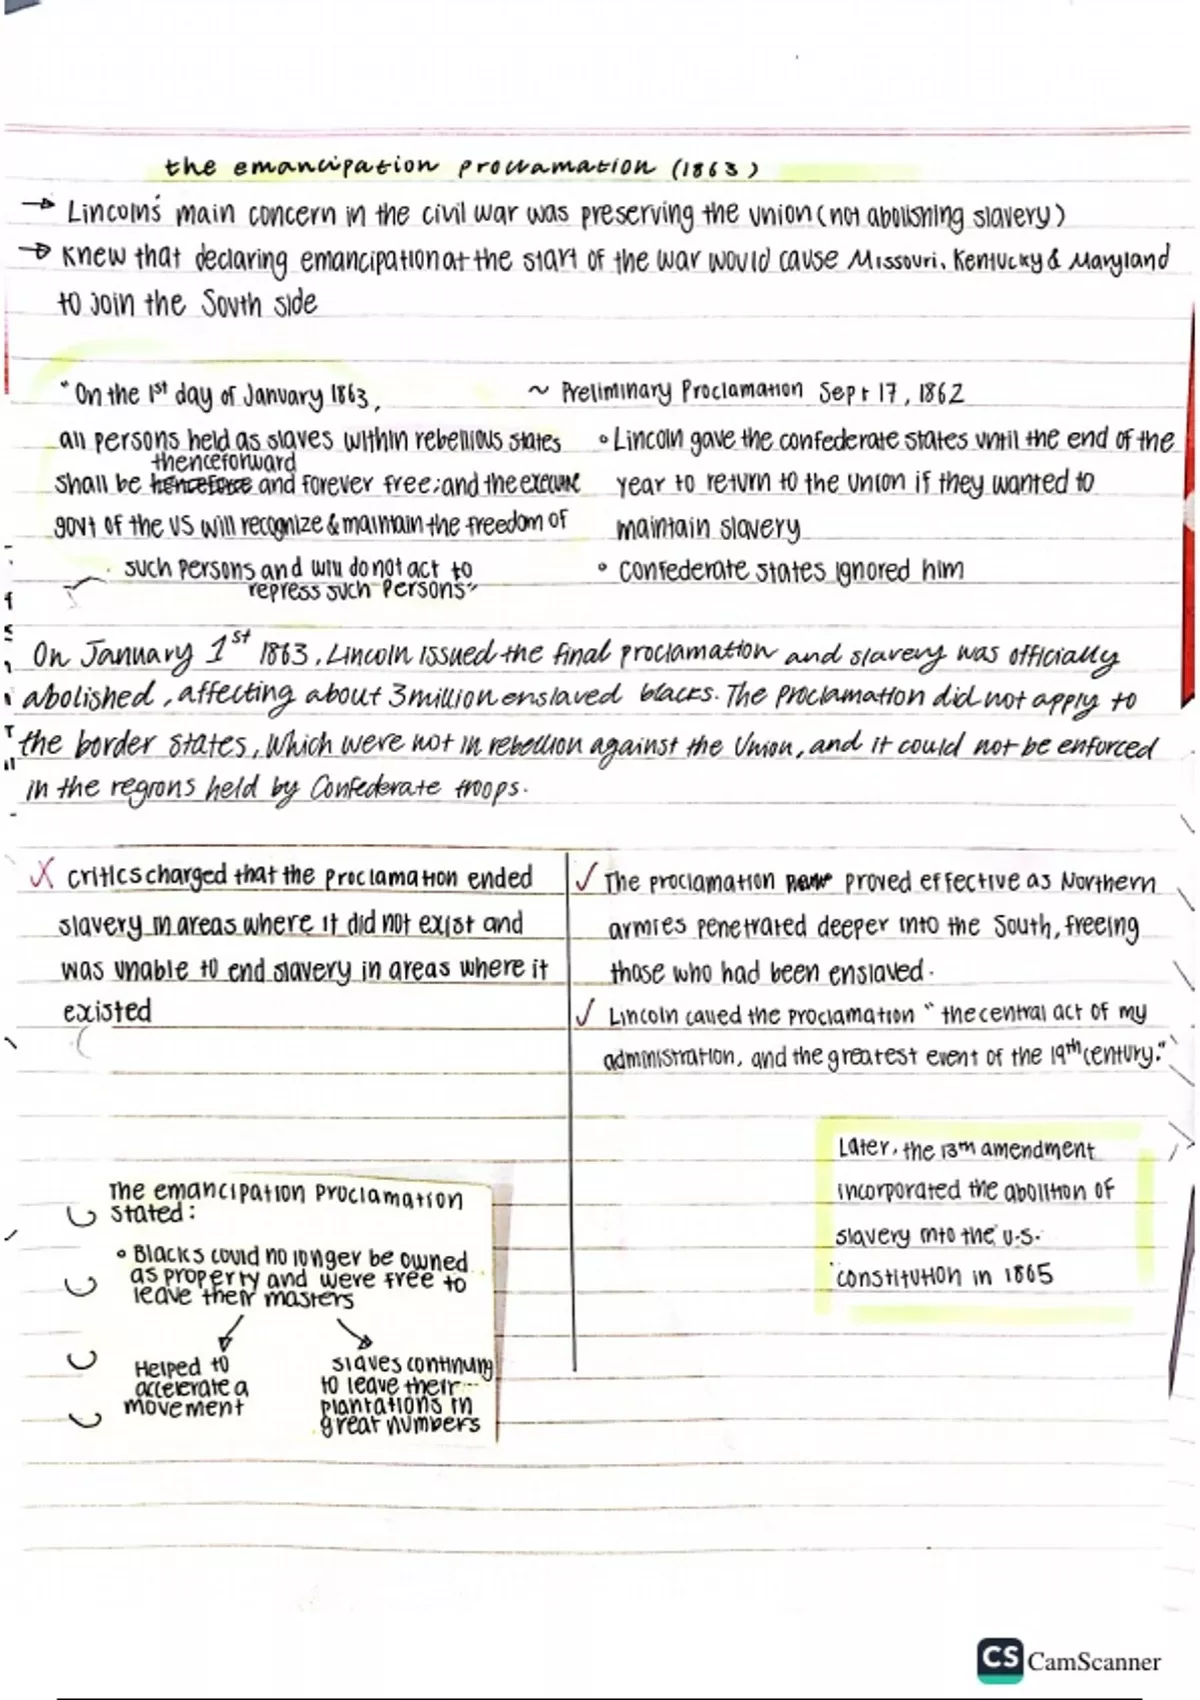 the emancipation proclamation (1863)
→ Lincoln's main concern in the civil war was preserving the union (not abolishing slavery)
→ Knew that declaring emancipation at the start of the war would cause Missouri, Kentucky & Maryland
to join the South side
"On the 1st day of January 1863,
all persons held as slaves within rebellious states
thenceforward
shall be henceforce and forever free; and the executive
govt of the US will recognize & maintain the freedom of
such persons and will do not act to
repress such persons"
~ Preliminary Proclamation Sept 17, 1862
• Lincoln gave the confederate states until the end of the
year to return to the union if they wanted to
maintain slavery
• confederate states ignored him
On January 1st 1863, Lincoln issued the final proclamation and slavery was officially
abolished, affecting about 3 million enslaved blacks. The Proclamation did not apply to
the border states, which were not in rebellion against the Union, and it could not be enforced
in the regions held by Confederate troops.
X critics charged that the proclamation ended
slavery in areas where it did not exist and
was unable to end slavery in areas where it
existed
✓ The proclamation proved effective as Northern
armies penetrated deeper into the South, freeing
those who had been enslaved.
✓ Lincoln called the proclamation "the central act of my
administration, and the greatest event of the 19th century."
Later, the 13th amendment
incorporated the abolition of
slavery into the U.S.
constitution in 1865
The emancipation proclamation
stated:
• Blacks could no longer be owned
as property and were free to
leave their masters
Helped to
accelerate a
movement
slaves continuing
to leave their
plantations in
great numbers
CS CamScanner